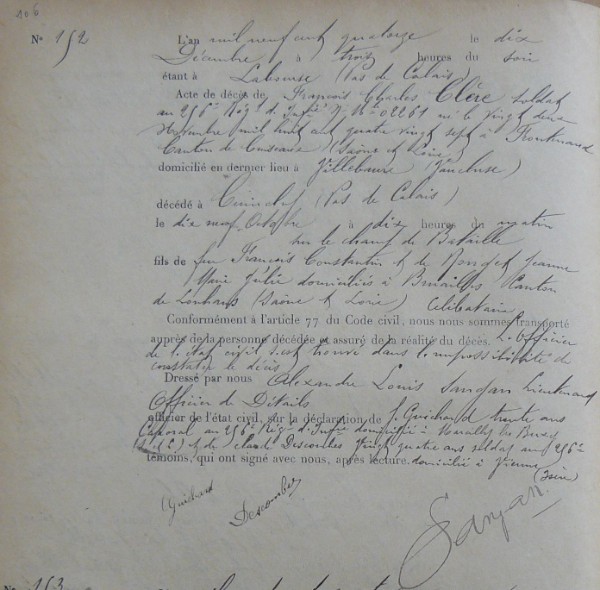 106
N° 152
L'an mil neuf cent quatorze le dix
Décembre à trois heures du soir
étant à Labeuse (Pas de Calais)
Acte de décès de François Charles Clère soldat
au 256e Régt d'Infie N° Me 02261 né le vingt deux
Novembre mil huit cent quatre vingt sept à Frontenaud
Canton de Cuiseaux (Saône et Loire)
domicilié en dernier lieu à Villelaure (Vaucluse)
décédé à Cuinchy (Pas de Calais)
le dix neuf Octobre à dix heures du matin
sur le champ de Bataille
fils de feu François Constantin et de Jeanne
Marie Julie domiciliés à Bruailles Canton
de Louhans (Saône et Loire) Célibataire
Conformément à l'article 77 du Code civil, nous nous sommes transporté
auprès de la personne décédée et assuré de la réalité du décès. L'officier
de l'état civil s'est trouvé dans l'impossibilité de
constater le décès
Dressé par nous Alexandre Louis Sanjan Lieutenant
Officier de Détails
officier de l'état civil, sur la déclaration de J. Guichard trente ans
Caporal au 256e Régt d'Infie domicilié à
et de Claude Descombes Vingt quatre ans soldat au 256e
témoins, qui ont signé avec nous, après lecture. domicilié à Vienne
(Isère)
Guichard
Descombes
Sanjan
N° 153